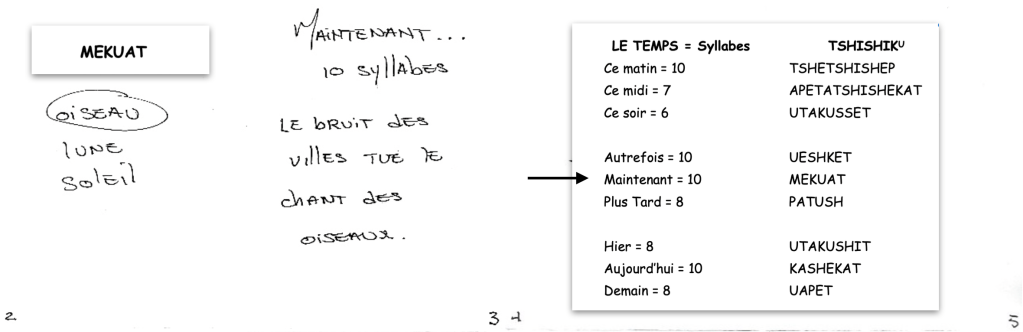 MEKUAT
OISEAU
LUNE
SOLEIL
2
MAINTENANT...
10 SYLLABES
LE BRUIT DES
VILLES TUE LE
CHANT DES
OISEAUX.
3
4
LE TEMPS = Syllabes TSHISHIKᵁ
Ce matin = 10 TSHETSHISHEP
Ce midi = 7 APETATSHISHEKAT
Ce soir = 6 UTAKUSSET
Autrefois = 10 UESHKET
Maintenant = 10 MEKUAT
Plus Tard = 8 PATUSH
Hier = 8 UTAKUSHIT
Aujourd'hui = 10 KASHEKAT
Demain = 8 UAPET
5